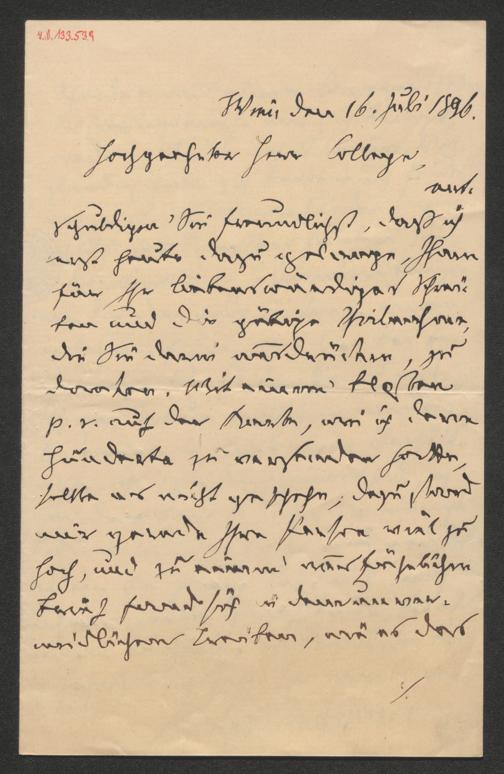 4.8.133.539
Wien den 16. Juli 1896.
Hochgeehrter Herr College,
ent-
schuldigen Sie freundlichst, daß ich
erst heute dazu gelange, Ihnen
für Ihr liebenswürdiges Schrei-
ben und die gütige Theilnahme,
die Sie darin ausdrücken, zu
danken. Mit einem bloßen
p. r. auf der Karte, wie ich deren
Hunderte zu versenden hatte,
sollte es nicht geschehn, dazu stand
mir gerade Ihre Person viel zu
hoch, und zu einem ausführlichen
Brief fand sich in dem unver-
meidlichen Treiben, wie es das
./.